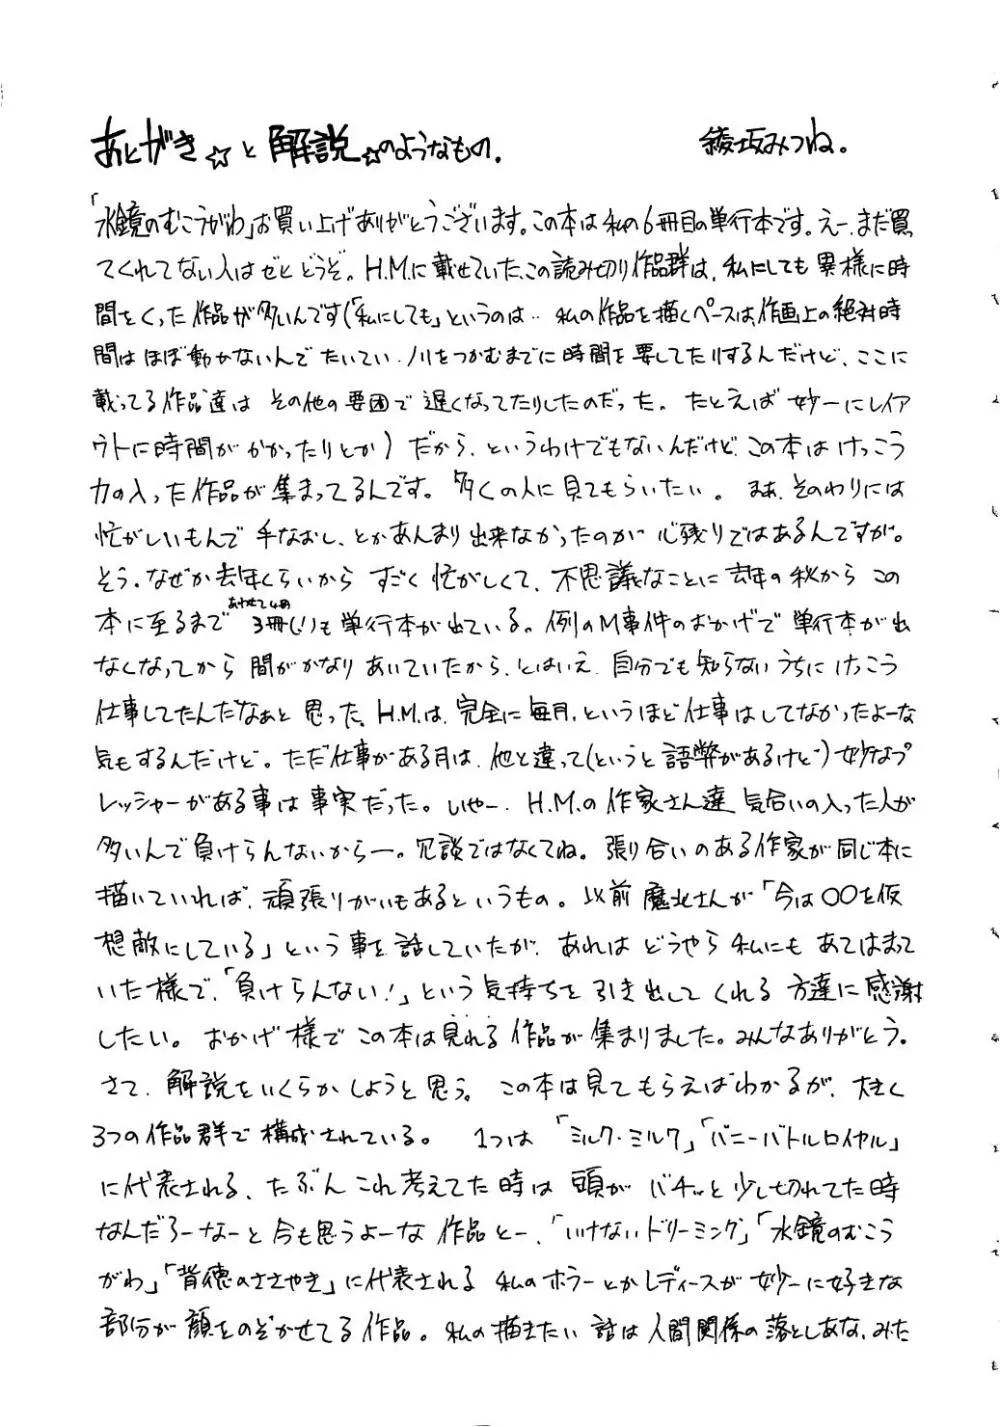 あとがき☆と解説☆のようなもの. 綾坂みつね。
「水鏡のむこうがわ」お買い上げありがとうございます。この本は私の6冊目の単行本です。えー、まだ買っ
てくれてない人はぜひどうぞ。H.M.に載せていた、この読み切り作品群は、私にしても異様に時
間をくった作品が多いんです(「私にしても」というのは‥私の作品を描くペースは、作画上の絶対時
間はほぼ動かないんでたいてい、ノリをつかむまでに時間を要してたりするんだけど、ここに
載ってる作品達はその他の要因で遅くなってたりしたのだった。たとえば妙ーにレイア
ウトに時間がかかったりとか)だから、というわけでもないんだけど、この本はけっこう
力の入った作品が集まってるんです。多くの人に見てもらいたい。まあ、そのわりには
忙がしいもんで手なおし、とかあんまり出来なかったのが心残りではあるんですが。
そう、なぜか去年くらいからすごく忙がしくて、不思議なことに去年の秋からこの
本に至るまで3冊(!)も単行本が出ている。例のM事件のおかげで単行本が出
あわせて4冊
なくなってから間がかなりあいていたから、とはいえ、自分でも知らないうちにけっこう
仕事してたんだなぁと思った。H.M.は、完全に毎月、というほど仕事はしてなかったよーな
気もするんだけど。ただ仕事がある月は、他と違って(というと語弊があるけど)妙なプ
レッシャーがある事は事実だった。いやー、H.M.の作家さん達気合いの入った人が
多いんで負けらんないからー。冗談ではなくてね。張り合いのある作家が同じ本に
描いていれば、頑張りがいもあるというもの。以前魔北さんが「今は〇〇を仮
想敵にしている」という事を話していたが、あれはどうやら私にもあてはまって
いた様で、「負けらんない!」という気持ちを引き出してくれる方達に感謝
したい。おかげ様でこの本は見れる作品が集まりました。みんなありがとう。
さて、解説をいくらかしようと思う。この本は見てもらえばわかるが、大きく
3つの作品群で構成されている。1つは「ミルク・ミルク」「バニーバトルロイヤル」
に代表される、たぶんこれ考えてた時は頭がバチッと少し切れてた時
なんだろーなーと今も思うよーな作品とー、「いけないドリーミング」「水鏡のむこう
がわ」「背徳のささやき」に代表される私のホラーとかレディースが妙ーに好きな
部分が顔をのぞかせてる作品。私の描きたい話は人間関係の落としあな、みた